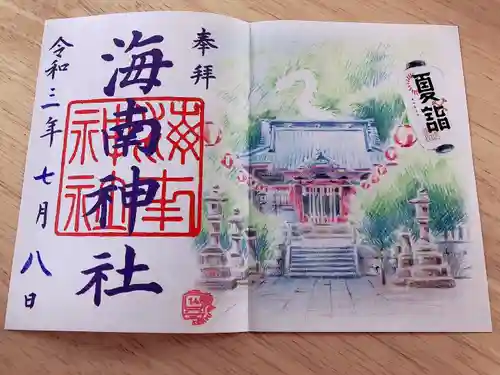 奉拝
海南神社
令和三年七月八日
夏詣